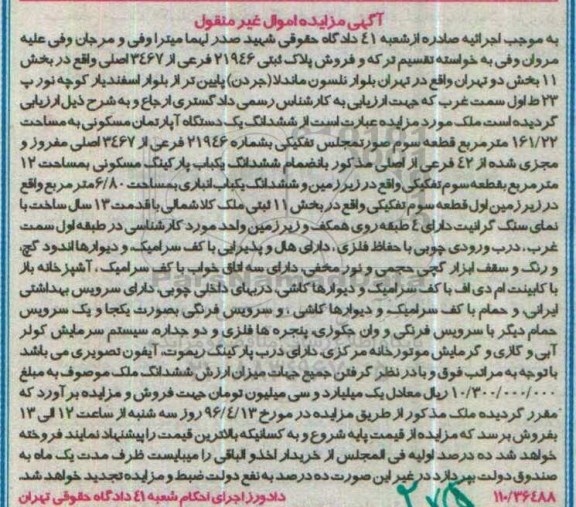 آگهی مزایده اموال غیر منقول
به موجب اجرائیه صادره از شعبه ٤١ دادگاه حقوقی شهید صدر لهما میترا وفی و مرجان وفی علیه
مروان وفی به خواسته تقسیم ترکه و فروش پلاک ثبتی ٢١٩٤٦ فرعی از ٣٤٦٧ اصلی واقع در بخش
١١ بخش دو تهران واقع در تهران بلوار نلسون ماندلا (جردن) پایین تر از بلوار اسفندیار کوچه نور پ
٢٣ ط اول سمت غرب که جهت ارزیابی به کارشناس رسمی دادگستری ارجاع و به شرح ذیل ارزیابی
گردیده است ملک مورد مزایده عبارت است از ششدانگ یک دستگاه آپارتمان مسکونی به مساحت
١٦١/٢٢ متر مربع قطعه سوم صورتمجلس تفکیکی بشماره ٢١٩٤٦ فرعی از ٣٤٦٧ اصلی مفروز و
مجزی شده از ٤٢ فرعی از اصلی مذکور بانضمام ششدانگ یکباب پارکینگ مسکونی بمساحت ١٢
متر مربع بقطعه سوم تفکیکی واقع در زیرزمین و ششدانگ یکباب انباری بمساحت ٦/٨٠ متر مربع واقع
در زیرزمین اول قطعه سوم تفکیکی واقع در بخش ١١ ثبتی ملک کلا شمالی با قدمت ١٣ سال ساخت با
نمای سنگ گرانیت دارای ٤ طبقه روی همکف و زیرزمین واحد مورد کارشناسی در طبقه اول سمت
غرب، درب ورودی چوبی با حفاظ فلزی، دارای هال و پذیرایی با کف سرامیک، و دیوارها اندود گچ،
و رنگ و سقف ابزار گچی حجمی و نور مخفی، دارای سه اتاق خواب با کف سرامیک، آشپزخانه باز
با کابینت ام دی اف با کف سرامیک و دیوارها کاشی، دربهای داخلی چوبی، دارای سرویس بهداشتی
ایرانی، و حمام با کف سرامیک، و دیوارها کاشی، و سرویس فرنگی بصورت یکجا و یک سرویس
حمام دیگر با سرویس فرنگی و وان جکوزی، پنجره ها فلزی و دو جداره، سیستم سرمایش کولر
آبی و گازی و گرمایش موتورخانه مرکزی، دارای درب پارکینگ ریموت، آیفون تصویری می باشد
با توجه به مراتب فوق و با در نظر گرفتن جمیع جهات میزان ارزش ششدانگ ملک موصوف به مبلغ
١٠/٣٠٠/٠٠٠/٠٠٠ ریال معادل یک میلیارد و سی میلیون تومان جهت فروش و مزایده برآورد که
مقرر گردیده ملک مذکور از طریق مزایده در مورخ ٩٦/٤/١٣ روز سه شنبه از ساعت ١٢ الی ١٣
بفروش برسد که مزایده از قیمت پایه شروع و به کسانیکه بالاترین قیمت را پیشنهاد نمایند فروخته
خواهد شد ده درصد اولیه فی المجلس از خریدار اخذ و الباقی را میبایست ظرف مدت یک ماه به
صندوق دولت بپردازد در غیر این صورت ده درصد به نفع دولت ضبط و مزایده تجدید خواهد شد.
١١٠/٣٦٤٨٨ دادورز اجرای احکام شعبه ٤١ دادگاه حقوقی تهران